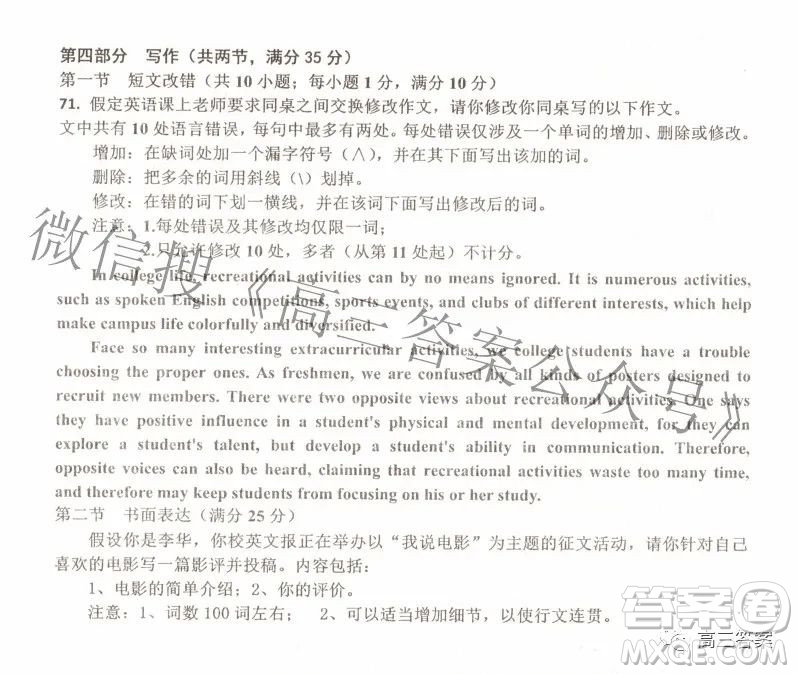 第四部分 写作（共两节，满分 35 分）
第一节 短文改错（共 10 小题；每小题 1 分，满分 10 分）
71. 假定英语课上老师要求同桌之间交换修改作文，请你修改你同桌写的以下作文。
文中共有 10 处语言错误，每句中最多有两处。每处错误仅涉及一个单词的增加、删除或修改。
增加：在缺词处加一个漏字符号（∧），并在其下面写出该加的词。
删除：把多余的词用斜线（\）划掉。
修改：在错的词下划一横线，并在该词下面写出修改后的词。
注意：1.每处错误及其修改均仅限一词；
2.只允许修改 10 处，多者（从第 11 处起）不计分。
In college life, recreational activities can by no means ignored. It is numerous activities,
such as spoken English competitions, sports events, and clubs of different interests, which help
make campus life colorfully and diversified.
Face so many interesting extracurricular activities, we college students have a trouble
choosing the proper ones. As freshmen, we are confused by all kinds of posters designed to
recruit new members. There were two opposite views about recreational activities. One says
they have positive influence in a student's physical and mental development, for they can
explore a student's talent, but develop a student's ability in communication. Therefore,
opposite voices can also be heard, claiming that recreational activities waste too many time,
and therefore may keep students from focusing on his or her study.
第二节 书面表达（满分 25 分）
假设你是李华，你校英文报正在举办以“我说电影”为主题的征文活动，请你针对自己
喜欢的电影写一篇影评并投稿。内容包括：
1、电影的简单介绍；2、你的评价。
注意：1、词数 100 词左右； 2、可以适当增加细节，以使行文连贯。
微信搜《高三答案公众号》
答案卷
高三答案
MXQE.COM